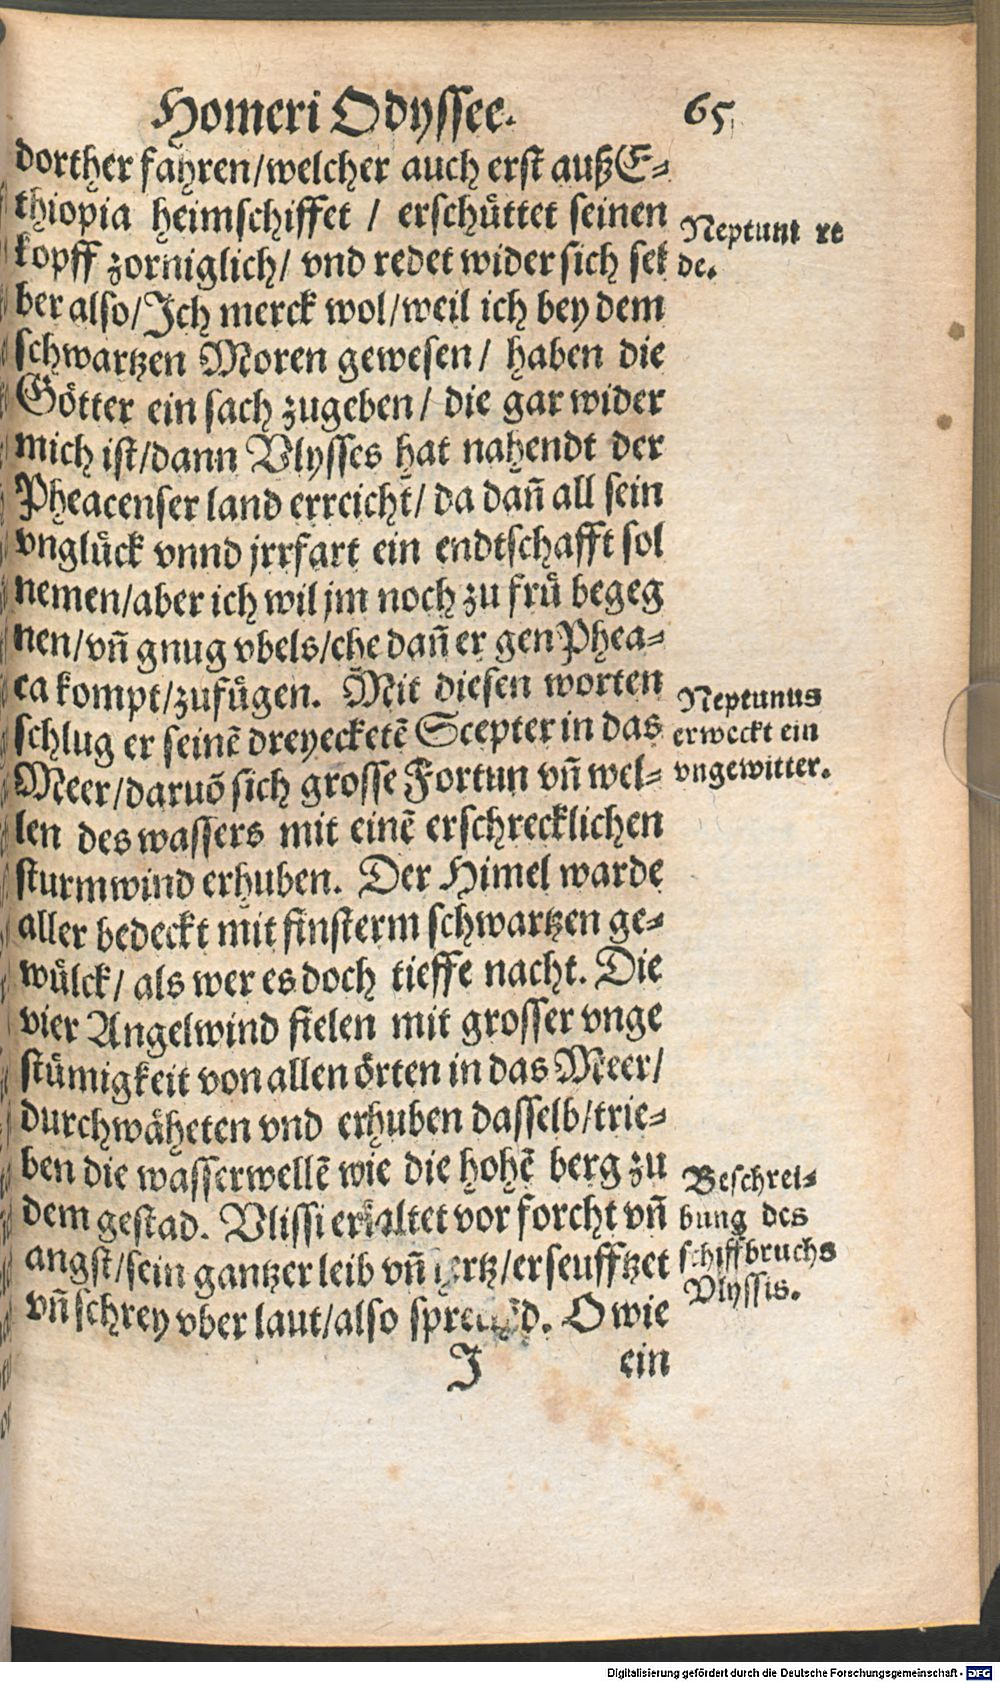 Homeri Odyssee. 65
dorther fahren/welcher auch erst außE-
thiopia heimschiffet / erschüttet seinen
kopff zorniglich/ vnd redet wider sich sel
ber also/Ich merck wol/weil ich bey dem
schwartzen Moren gewesen/ haben die
Götter ein sach zugeben/ die gar wider
mich ist/dann Vlysses hat nahendt der
Pheacenser land erreicht/ da dañ all sein
vnglück vnnd jrrfart ein endtschafft sol
nemen/aber ich wil jm noch zu frü begeg
nen/vñ gnug vbels/ehe dañ er gen Phea-
ca kompt/zufügen. Mit diesen worten
schlug er seinē dreyecketē Scepter in das
Meer/daruõ sich grosse Fortun vñ wel-
len des wassers mit einē erschrecklichen
sturmwind erhuben. Der Himel warde
aller bedeckt mit finsterm schwartzen ge-
wülck/ als wer es doch tieffe nacht. Die
vier Angelwind fielen mit grosser vnge
stümigkeit von allen örten in das Meer/
durchwäheten vnd erhuben dasselb/trie-
ben die wasserwellē wie die hohē berg zu
dem gestad. Vlissi erkaltet vor forcht vñ
angst/sein gantzer leib vñ hertz/erseufftzet
vñ schrey vber laut/also . O wie
I ein
Neptuni re
de.
Neptunus
erweckt ein
vngewitter.
Beschrei-
bung des
schiffbruchs
Vlyssis.
Digitalisierung gefördert durch die Deutsche Forschungsgemeinschaft - DFG